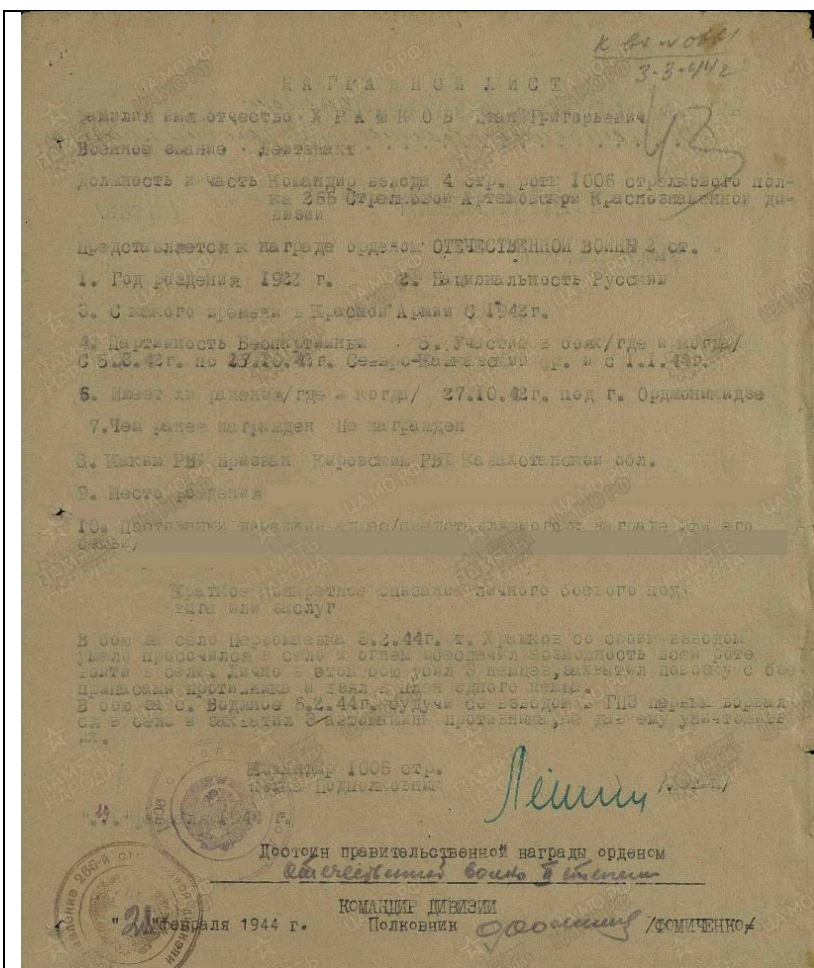 К вх № 
3-3-44 г
НАГРАДНОЙ ЛИСТ
Фамилия имя отчество ХРАМКОВ Иван Григорьевич
Военное звание Лейтенант
Должность и часть Командир взвода 4 стр. роты 1006 стрелкового пол-
ка 266 Стрелковой Артемовской Краснознаменной ди-
визии
Представляется к награде орденом ОТЕЧЕСТВЕННОЙ ВОЙНЫ 2 ст.
1. Год рождения 1922 г. 2. Национальность Русский
3. С какого времени в Красной Армии С 1942г.
4. Партийность Беспартийный 5. Участие в боях/где и когда/
С 5. .42г. по 27.10.42г. Северо-Кавказский фр. и с 1.1.44г.
6. Имеет ли ранения/где и когда/ 27.10.42г. под г. Орджоникидзе
7.Чем ранее награжден Не награжден
8. Каким РВК призван Кировским РВК обл.
9. Место рождения
10. Постоянный домашний адрес/представляемого к награде или его
семьи/
Краткое конкретное описание личного боевого под-
вига или заслуг
В бою за село Первомаевка .2.44г. т. Храмков со своим взводом
умело просочился в село и огнем обеспечил возможность всей роте
войти в село. Лично в этом бою убил 3 немцев,захватил повозку с бое-
припасами противника и взял в плен одного немца.
В бою за с. Водяное 6.2.44г. будучи со взводом в ГПЗ первым ворвал-
ся в село и захватил 3 автомашины противника,не дав ему уничтожить
их.
Командир 1006 стр.
полка Подполковник
"19" 1944 г.
Достоин правительственной награды орденом
Отечественной войны II степени
КОМАНДИР ДИВИЗИИ
"21"февраля 1944 г. Полковник /ФОМИЧЕНКО/